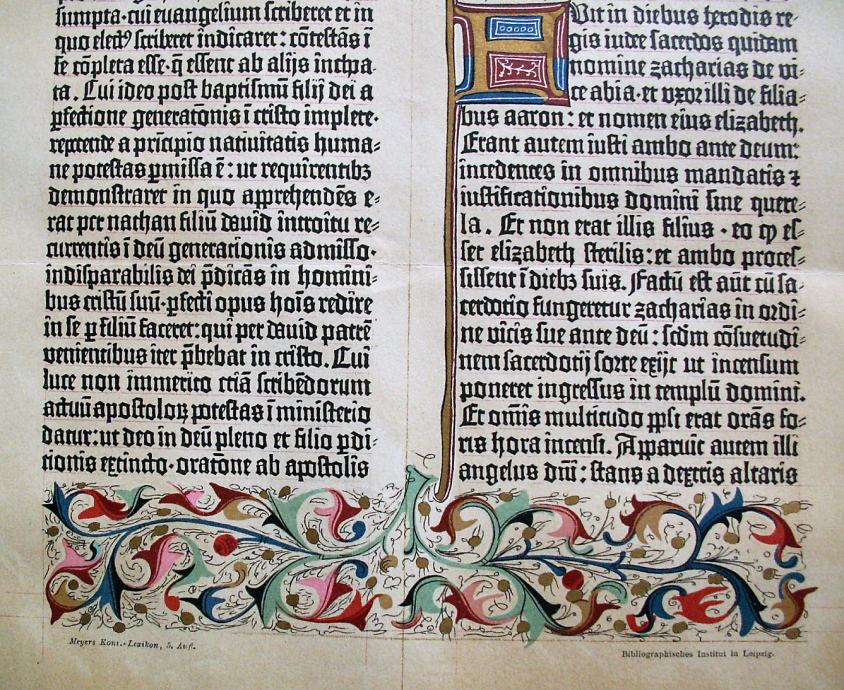 sumpta·cui euangelium scriberet et in
quo elect⁹ scriberet indicaret: cōtestās ī
se cōpleta esse·q̄ essent ab alijs inchoa-
ta. Cui ideo post baptismū filij dei a
ꝑfectione generationis ī cristo implete·
repetende a principio natiuitatis huma-
ne potestas ꝑmissa ē: ut requirentibꝫ
demonstraret in quo apprehendēs e-
rat per nathan filiū dauid introitu re-
currentis ī deū generationis admisso·
indisparabilis dei p̄dicās in homini-
bus cristū suū·ꝑfecti opus hoīs redire
in se ꝑ filiū faceret: qui per dauid patrē
venientibus iter p̄bebat in cristo. Cui
luce non immerito etiā scribēdorum
actuū apostoloꝝ potestas ī ministerio
datur: ut deo in deū pleno et filio ꝑdi-
tionis extincto·oratōne ab apostolis
Fuit in diebus herodis re-
gis iudee sacerdos quidam
nomine zacharias de vi-
ce abia·et vxor illi de filia-
bus aaron: et nomen eius elizabeth.
Erant autem iusti ambo ante deum:
incedentes in omnibus mandatis ⁊
iustificationibus domini sine quere-
la. Et non erat illis filius·eo ꝙ es-
set elizabeth sterilis: et ambo proces-
sissent ī diebꝫ suis. Factū est aūt cū sa-
cerdotio fungeretur zacharias in ordi-
ne vicis sue ante deū: scdm cōsuetudi-
nem sacerdotij sorte exijt ut incensum
poneret ingressus in templū domini.
Et om̄is multitudo ppli erat orās fo-
ris hora incensi. Apparuit autem illi
angelus dn̄i: stans a dextris altaris
Meyers Konv.-Lexikon, 5. Aufl.
Bibliographisches Institut in Leipzig.